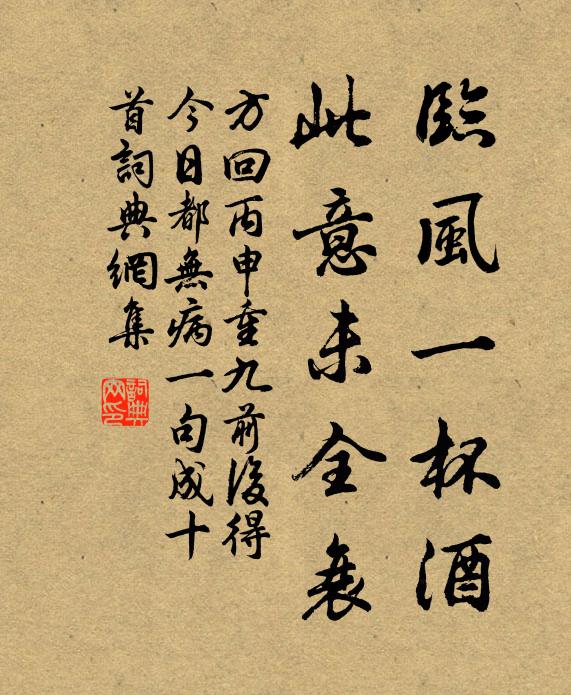 臨風一杯酒
此意未全衰
方回丙申重九前後得
今日都無病一句成十
首詞典網集
詞典網印